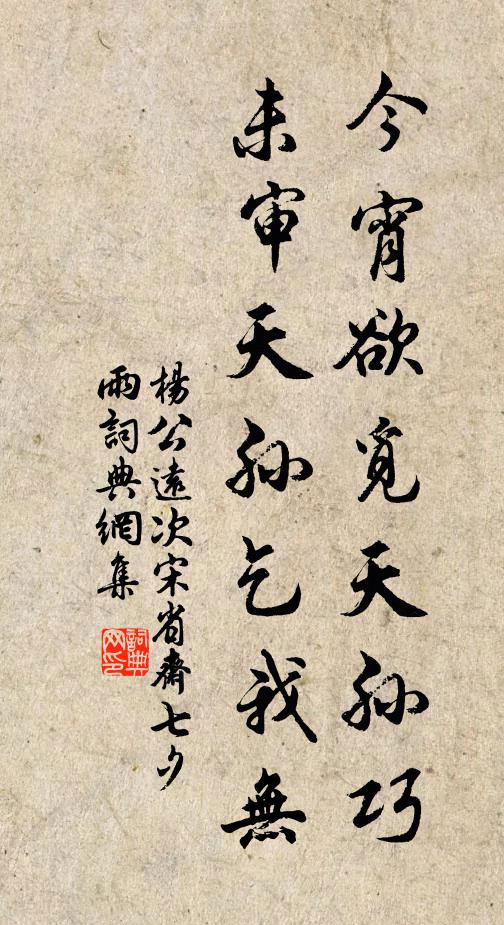 今宵欲覓天孫巧
未審天孫乞我無
楊公遠次宋省齋七夕
雨詞典網集
詞典
网印